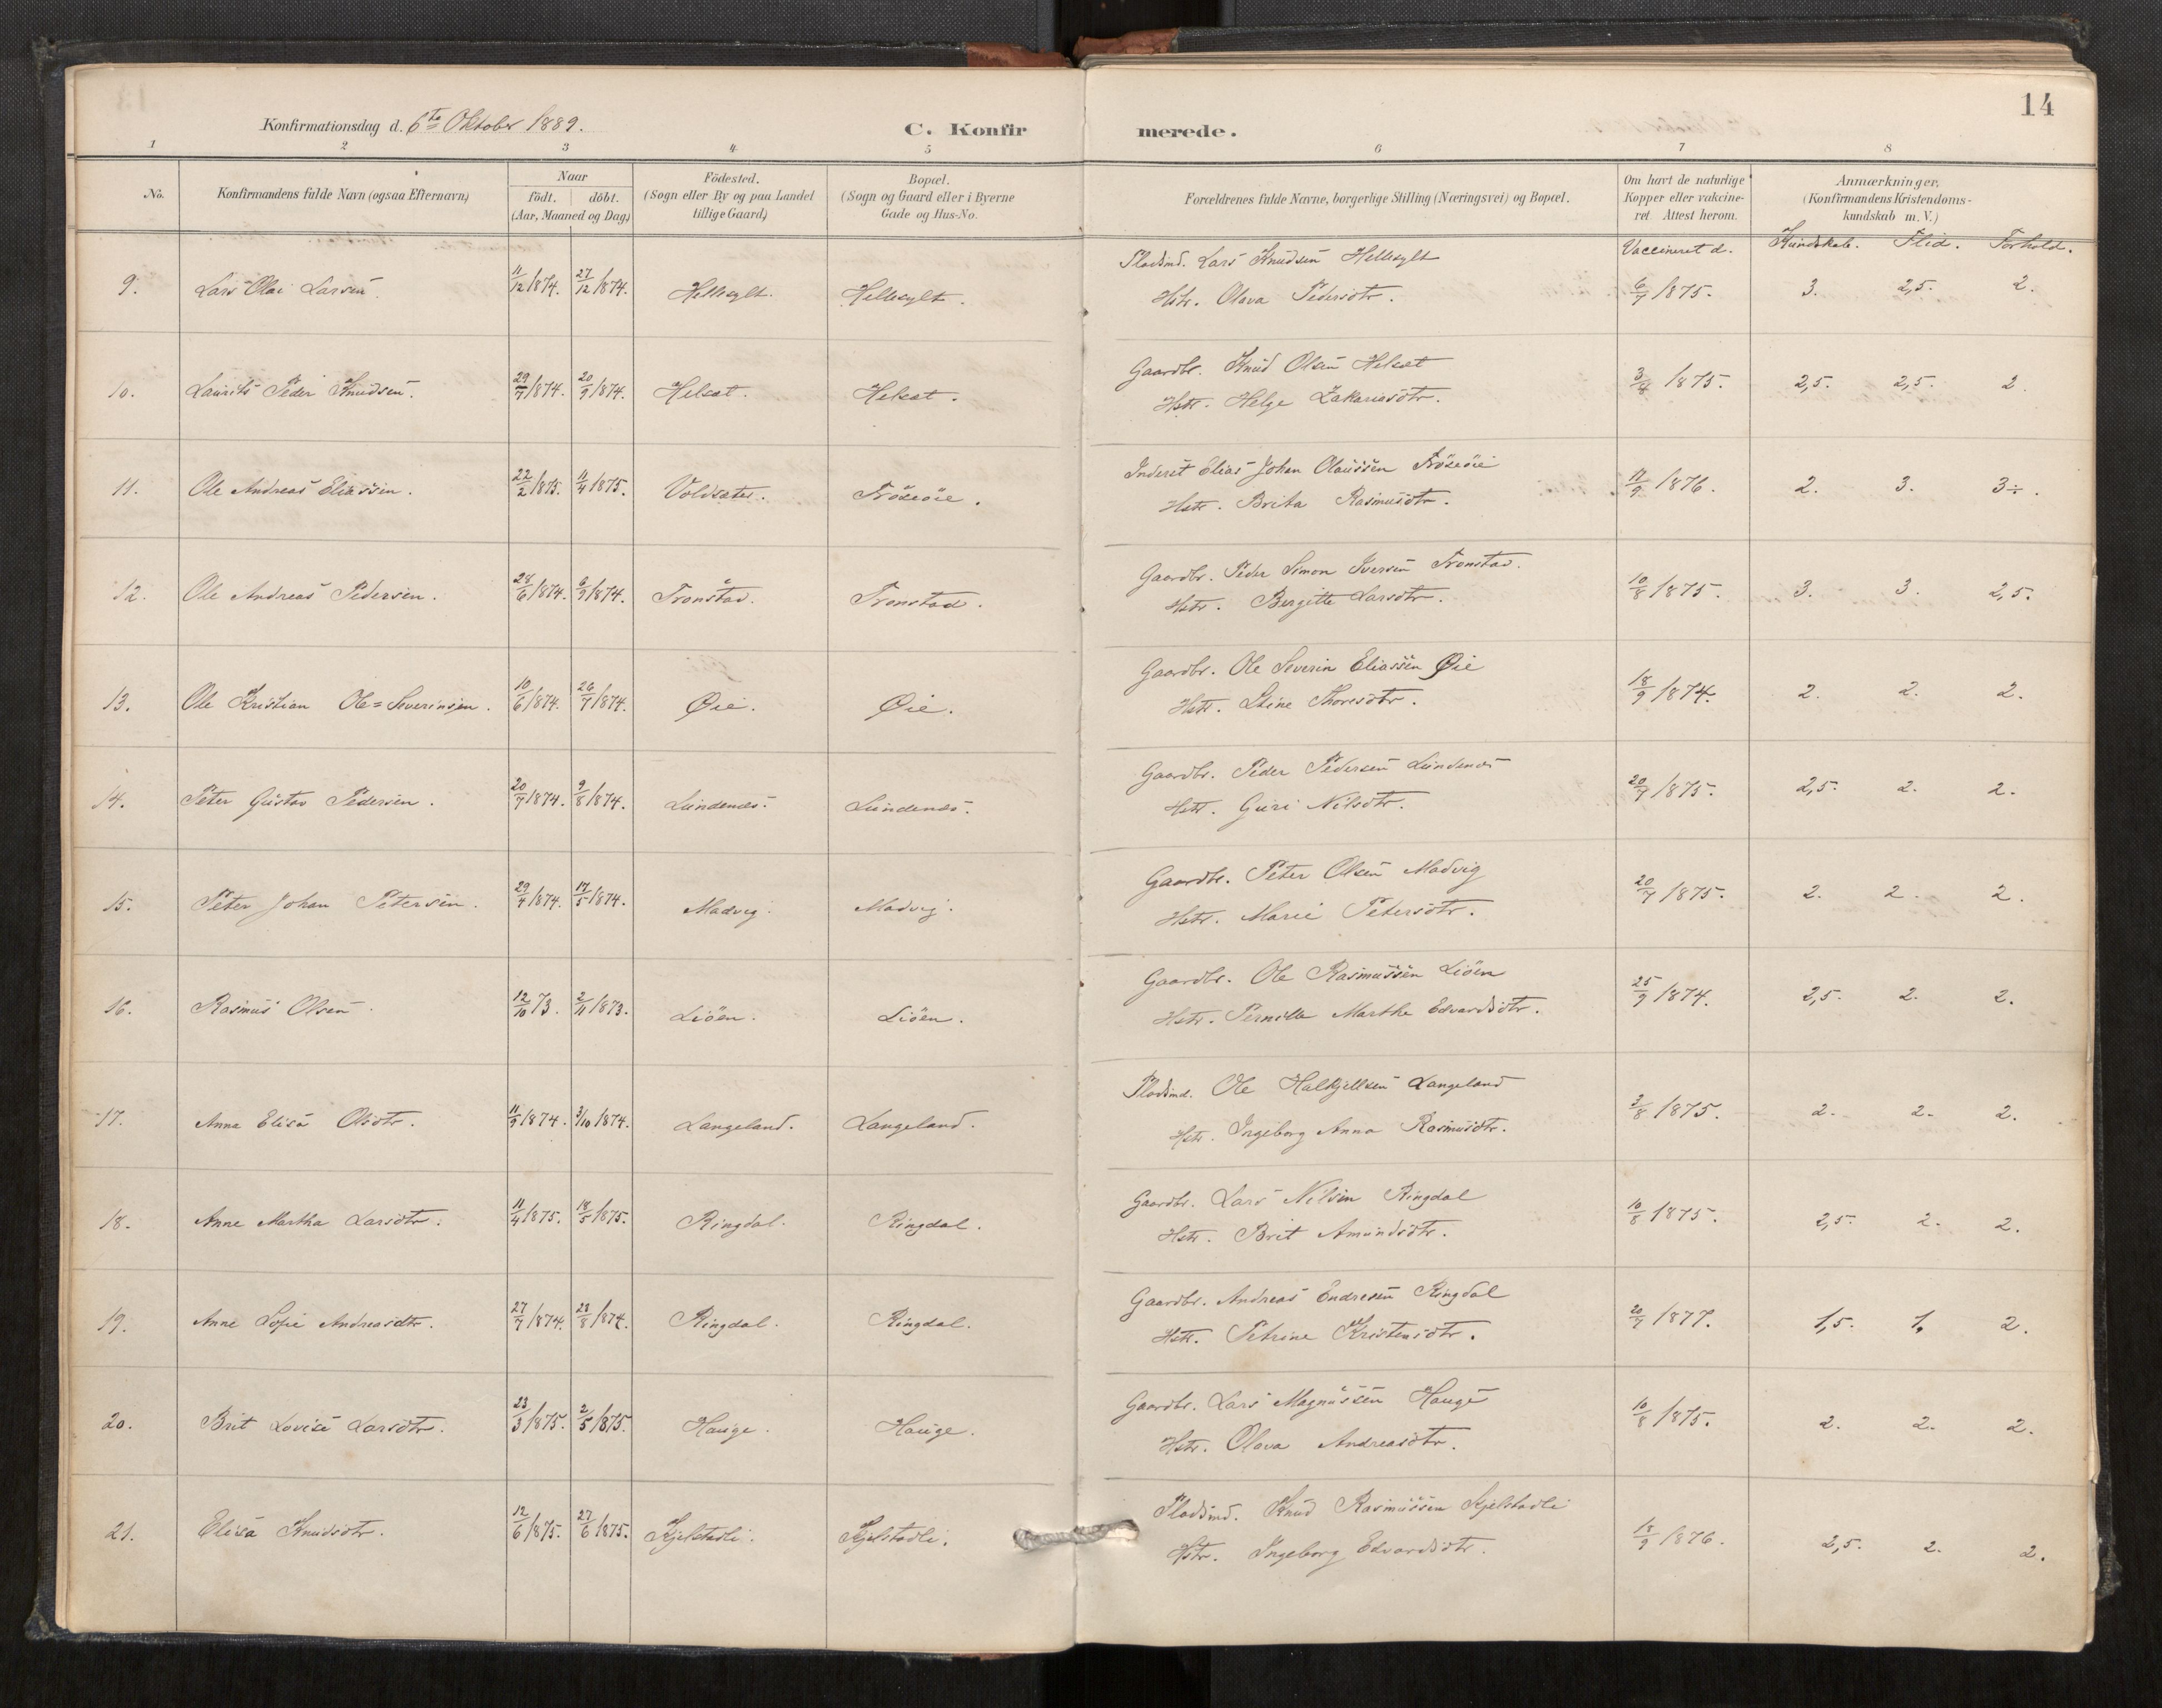 14
Konfirmationsdag d. 6te Oktober 1889.
C. Konfirmerede.
1 2 3 4 5 6 7 8
No.
Konfirmandens fulde Navn (ogsaa Efternavn)
Naar
födt. döbt.
(Aar, Maaned og Dag)
Födested.
(Sogn eller By og paa Landet
tillige Gaard)
Bopæl.
(Sogn og Gaard eller i Byerne
Gade og Hus-No.
Forældrenes fulde Navne, borgerlige Stilling (Næringsvei) og Bopæl.
Om havt de naturlige
Kopper eller vakcine-
ret. Attest herom.
Anmærkninger.
(Konfirmandens Kristendoms-
kundskab m. V.)
Vaccineret d. Kundskab. Flid. Forhold.
9. Lars Olai Larsen. 11/12 1874. 27/12 1874. Hellesylt. Hellesylt. Pladsmd. Lars Knudsen Hellesylt 6/7 1875. 3. 2,5. 2.
Hstr. Olava Pedersdtr.
10. Laurits Peder Knudsen. 29/7 1874. 20/9 1874. Helsæt. Helsæt. Gaardbr. Knud Olsen Helsæt 3/4 1875. 2,5. 2,5. 2.
Hstr. Helge Zakariasdtr.
11. Ole Andreas Eliassen. 22/2 1875. 11/4 1875. Voldsæter. Fröseöie. Inderst Elias Johan Olaussen Fröseöie 17/9 1876. 2. 3. 3÷.
Hstr. Brita Rasmusdtr.
12. Ole Andreas Pedersen. 28/6 1874. 6/9 1874. Tronstad. Tronstad. Gaardbr. Peder Simon Iversen Tronstad. 10/8 1875. 3. 3. 2,5.
Hstr. Bergitte Larsdtr.
13. Ole Kristian Ole=Severinsen. 10/6 1874. 26/7 1874. Øie. Øie. Gaardbr. Ole Severin Eliassen Øie 18/9 1874. 2. 2. 2.
Hstr. Stine Thoresdtr.
14. Peter Gustav Pedersen. 20/7 1874. 9/8 1874. Lundenæs. Lundenæs. Gaardbr. Peder Pedersen Lundenæs 20/7 1875. 2,5. 2. 2.
Hstr. Guri Nilsdtr.
15. Peter Johan Petersen. 29/4 1874. 17/5 1874. Madvig. Madvig. Gaardbr. Peter Olsen Madvig 20/7 1875. 2. 2. 2.
Hstr. Marie Petersdtr.
16. Rasmus Olsen. 12/10 73. 2/11 1873. Liöen. Liöen. Gaardbr. Ole Rasmussen Liöen 25/9 1874. 2,5. 2. 2.
Hstr. Pernille Marthe Edvardsdtr.
17. Anna Elisa Olsdtr. 11/9 1874. 3/10 1874. Langeland. Langeland. Pladsmd. Ole Halkjellsen Langeland 3/8 1875. 2. 2. 2.
Hstr. Ingeborg Anna Rasmusdtr.
18. Anne Martha Larsdtr. 11/4 1875. 18/5 1875. Ringdal. Ringdal. Gaardbr. Lars Nilsen Ringdal 10/8 1875. 2,5. 2. 2.
Hstr. Brit Amundsdtr.
19. Anne Sofie Andreasdtr. 27/7 1874. 23/8 1874. Ringdal. Ringdal. Gaardbr. Andreas Endresen Ringdal 20/7 1877. 1,5. 1, 2.
Hstr. Petrine Kristensdtr.
20. Brit Lovise Larsdtr. 23/3 1875. 2/5 1875. Hauge. Hauge. Gaardbr. Lars Magnussen Hauge 10/8 1875. 2. 2. 2.
Hstr. Olava Andreasdtr.
21. Elisa Knudsdtr. 12/6 1875. 27/6 1875. Kjelstadli. Kjelstadli. Pladsmd. Knud Rasmussen Kjelstadli 18/9 1876. 2,5. 2. 2.
Hstr. Ingeborg Edvardsdtr.